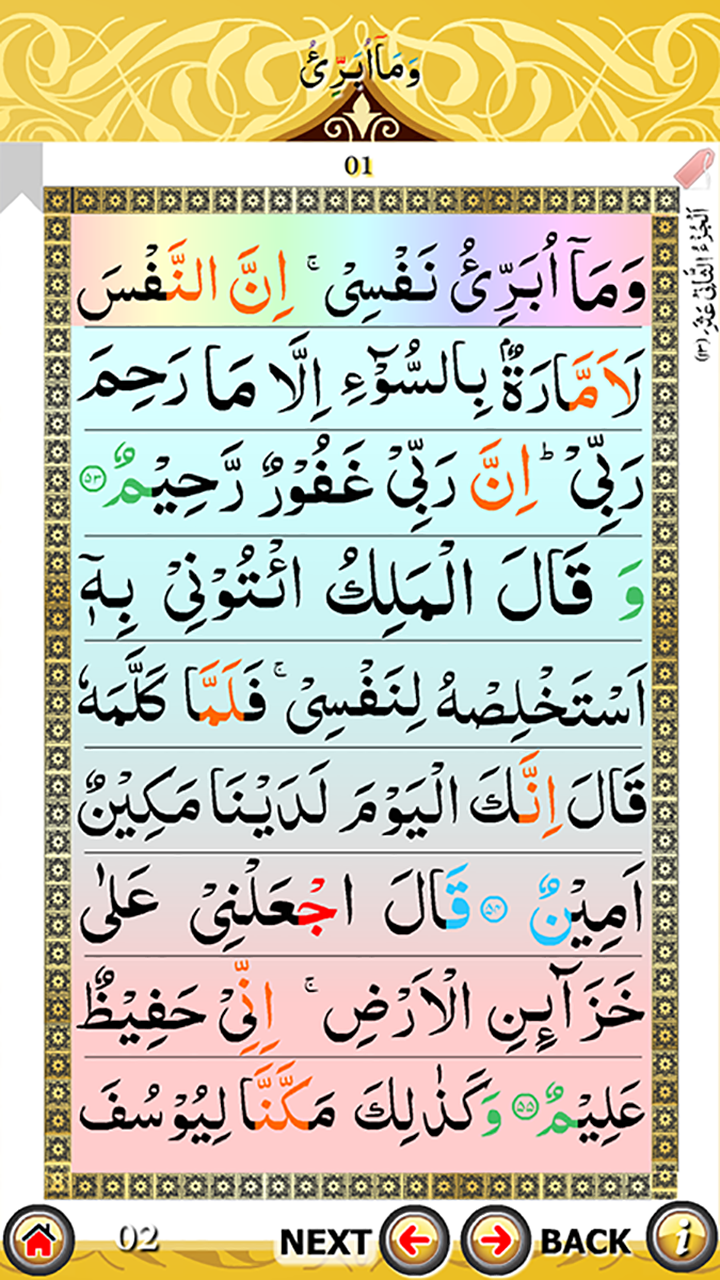 وَمَآ اُبَرِّئُ
01
اَلْجُزْءُ الثَّانِیْ عَشَرَ (۱۳)
وَمَآ اُبَرِّئُ نَفْسِیْ ۚ اِنَّ النَّفْسَ
لَاَمَّارَةٌۢ بِالسُّوْٓءِ اِلَّا مَا رَحِمَ
رَبِّیْ ؕ اِنَّ رَبِّیْ غَفُوْرٌ رَّحِیْمٌ ۵۳
وَ قَالَ الْمَلِكُ ائْتُوْنِیْ بِهٖۤ
اَسْتَخْلِصْهُ لِنَفْسِیْ ۚ فَلَمَّا كَلَّمَهٗ
قَالَ اِنَّكَ الْیَوْمَ لَدَیْنَا مَكِیْنٌ
اَمِیْنٌ ۵۴ قَالَ اجْعَلْنِیْ عَلٰی
خَزَآئِنِ الْاَرْضِ ۚ اِنِّیْ حَفِیْظٌ
عَلِیْمٌ ۵۵ وَكَذٰلِكَ مَكَّنَّا لِیُوْسُفَ
02 NEXT BACK i